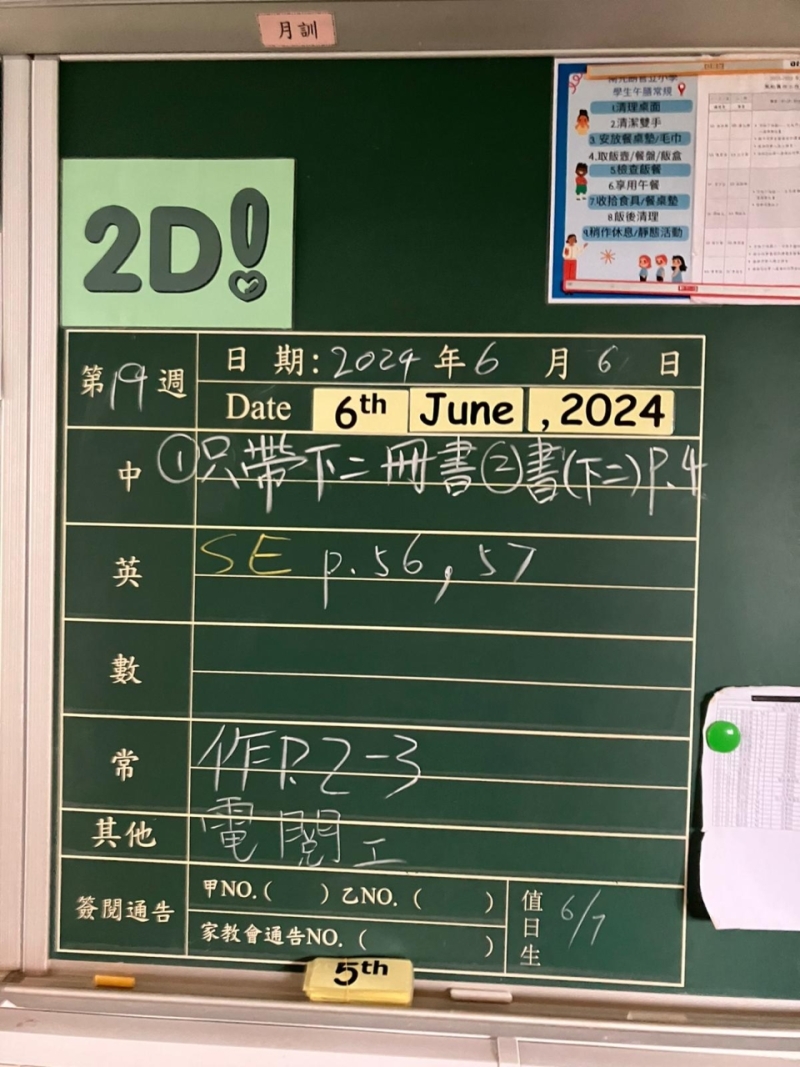 月訓
學生午膳常規
1.清理桌面
2.清潔雙手
3.安放餐桌墊/毛巾
4.取飯壺/餐盤/飯盒
5.檢查飯餐
6.享用午餐
7.收拾食具/餐桌墊
8.飯後清理
9.稍作休息/靜態活動
2D!
第19週
日期:2024年6月6日
Date 6th June , 2024
中 ①只帶下二冊書②書(下二)p.4
英 SE p.56,57
數
常 作P.2-3
其他 電閱工
簽閱通告 甲NO.( ) 乙NO.( )
家教會通告NO.( )
值日生 6/7
5th